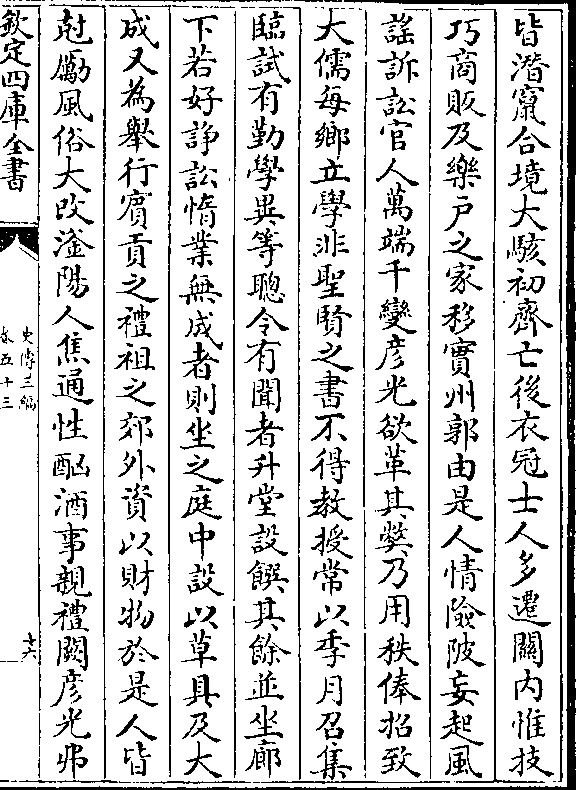 皆潛竄合境大駭初齊亡後衣冠士人多遷關内惟技
巧商販及樂户之家移實州郭由是人情險陂妄起風
謡訴訟官人萬端千變彦光欲革其弊乃用秩俸招致
大儒每鄉立學非聖賢之書不得教授常以季月召集
臨試有勤學異等聰令有聞者升堂設饌其餘並坐廊
下若好諍訟惰業無成者則坐之庭中設以草具及大
成又為舉行賓貢之禮祖之郊外資以財物於是人皆
尅勵風俗大改滏陽人焦通性酗酒事親禮闕彦光弗
欽定四庫全書
史傳三編
卷五十三
十六